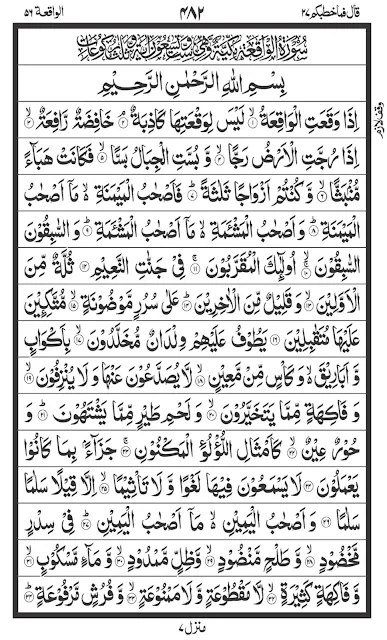 قال فما خطبكم ٢٧ ۴۸۲ الواقعة ٥٦
سُوْرَةُ الْوَاقِعَةِ مَكِّيَّةٌ وَّهِيَ سِتٌّ وَّتِسْعُوْنَ اٰيَةً وَّثَلٰثُ رُكُوْعَاتٍ
بِسْمِ اللّٰهِ الرَّحْمٰنِ الرَّحِيْمِ
وقف لازم
اِذَا وَقَعَتِ الْوَاقِعَةُ ۙ﴿۱﴾ لَيْسَ لِوَقْعَتِهَا كَاذِبَةٌ ۘ﴿۲﴾ خَافِضَةٌ رَّافِعَةٌ ۙ﴿۳﴾
اِذَا رُجَّتِ الْاَرْضُ رَجًّا ۙ﴿۴﴾ وَّ بُسَّتِ الْجِبَالُ بَسًّا ۙ﴿۵﴾ فَكَانَتْ هَبَآءً
مُّنْۢبَثًّا ۙ﴿۶﴾ وَّ كُنْتُمْ اَزْوَاجًا ثَلٰثَةً ؕ﴿۷﴾ فَاَصْحٰبُ الْمَيْمَنَةِ ۙ۬ مَاۤ اَصْحٰبُ
الْمَيْمَنَةِ ؕ﴿۸﴾ وَ اَصْحٰبُ الْمَشْـَٔمَةِ ۙ۬ مَاۤ اَصْحٰبُ الْمَشْـَٔمَةِ ؕ﴿۹﴾ وَ السّٰبِقُوْنَ
السّٰبِقُوْنَ ۚۙ﴿۱۰﴾ اُولٰٓئِكَ الْمُقَرَّبُوْنَ ۚ﴿۱۱﴾ فِيْ جَنّٰتِ النَّعِيْمِ ﴿۱۲﴾ ثُلَّةٌ مِّنَ
الْاَوَّلِيْنَ ۙ﴿۱۳﴾ وَ قَلِيْلٌ مِّنَ الْاٰخِرِيْنَ ؕ﴿۱۴﴾ عَلٰى سُرُرٍ مَّوْضُوْنَةٍ ۙ﴿۱۵﴾ مُّتَّكِـِٕيْنَ
عَلَيْهَا مُتَقٰبِلِيْنَ ﴿۱۶﴾ يَطُوْفُ عَلَيْهِمْ وِلْدَانٌ مُّخَلَّدُوْنَ ۙ﴿۱۷﴾ بِاَكْوَابٍ
وَّ اَبَارِيْقَ ۙ۬ وَ كَاْسٍ مِّنْ مَّعِيْنٍ ۙ﴿۱۸﴾ لَّا يُصَدَّعُوْنَ عَنْهَا وَ لَا يُنْزِفُوْنَ ۙ﴿۱۹﴾
وَ فَاكِهَةٍ مِّمَّا يَتَخَيَّرُوْنَ ۙ﴿۲۰﴾ وَ لَحْمِ طَيْرٍ مِّمَّا يَشْتَهُوْنَ ؕ﴿۲۱﴾ وَ
حُوْرٌ عِيْنٌ ۙ﴿۲۲﴾ كَاَمْثَالِ اللُّؤْلُؤِ الْمَكْنُوْنِ ۚ﴿۲۳﴾ جَزَآءًۢ بِمَا كَانُوْا
يَعْمَلُوْنَ ﴿۲۴﴾ لَا يَسْمَعُوْنَ فِيْهَا لَغْوًا وَّ لَا تَاْثِيْمًا ۙ﴿۲۵﴾ اِلَّا قِيْلًا سَلٰمًا
سَلٰمًا ﴿۲۶﴾ وَ اَصْحٰبُ الْيَمِيْنِ ۙ۬ مَاۤ اَصْحٰبُ الْيَمِيْنِ ؕ﴿۲۷﴾ فِيْ سِدْرٍ
مَّخْضُوْدٍ ۙ﴿۲۸﴾ وَّ طَلْحٍ مَّنْضُوْدٍ ۙ﴿۲۹﴾ وَّ ظِلٍّ مَّمْدُوْدٍ ۙ﴿۳۰﴾ وَّ مَآءٍ مَّسْكُوْبٍ ۙ﴿۳۱﴾
وَّ فَاكِهَةٍ كَثِيْرَةٍ ۙ﴿۳۲﴾ لَّا مَقْطُوْعَةٍ وَّ لَا مَمْنُوْعَةٍ ۙ﴿۳۳﴾ وَّ فُرُشٍ مَّرْفُوْعَةٍ ؕ﴿۳۴﴾
منزل ٧